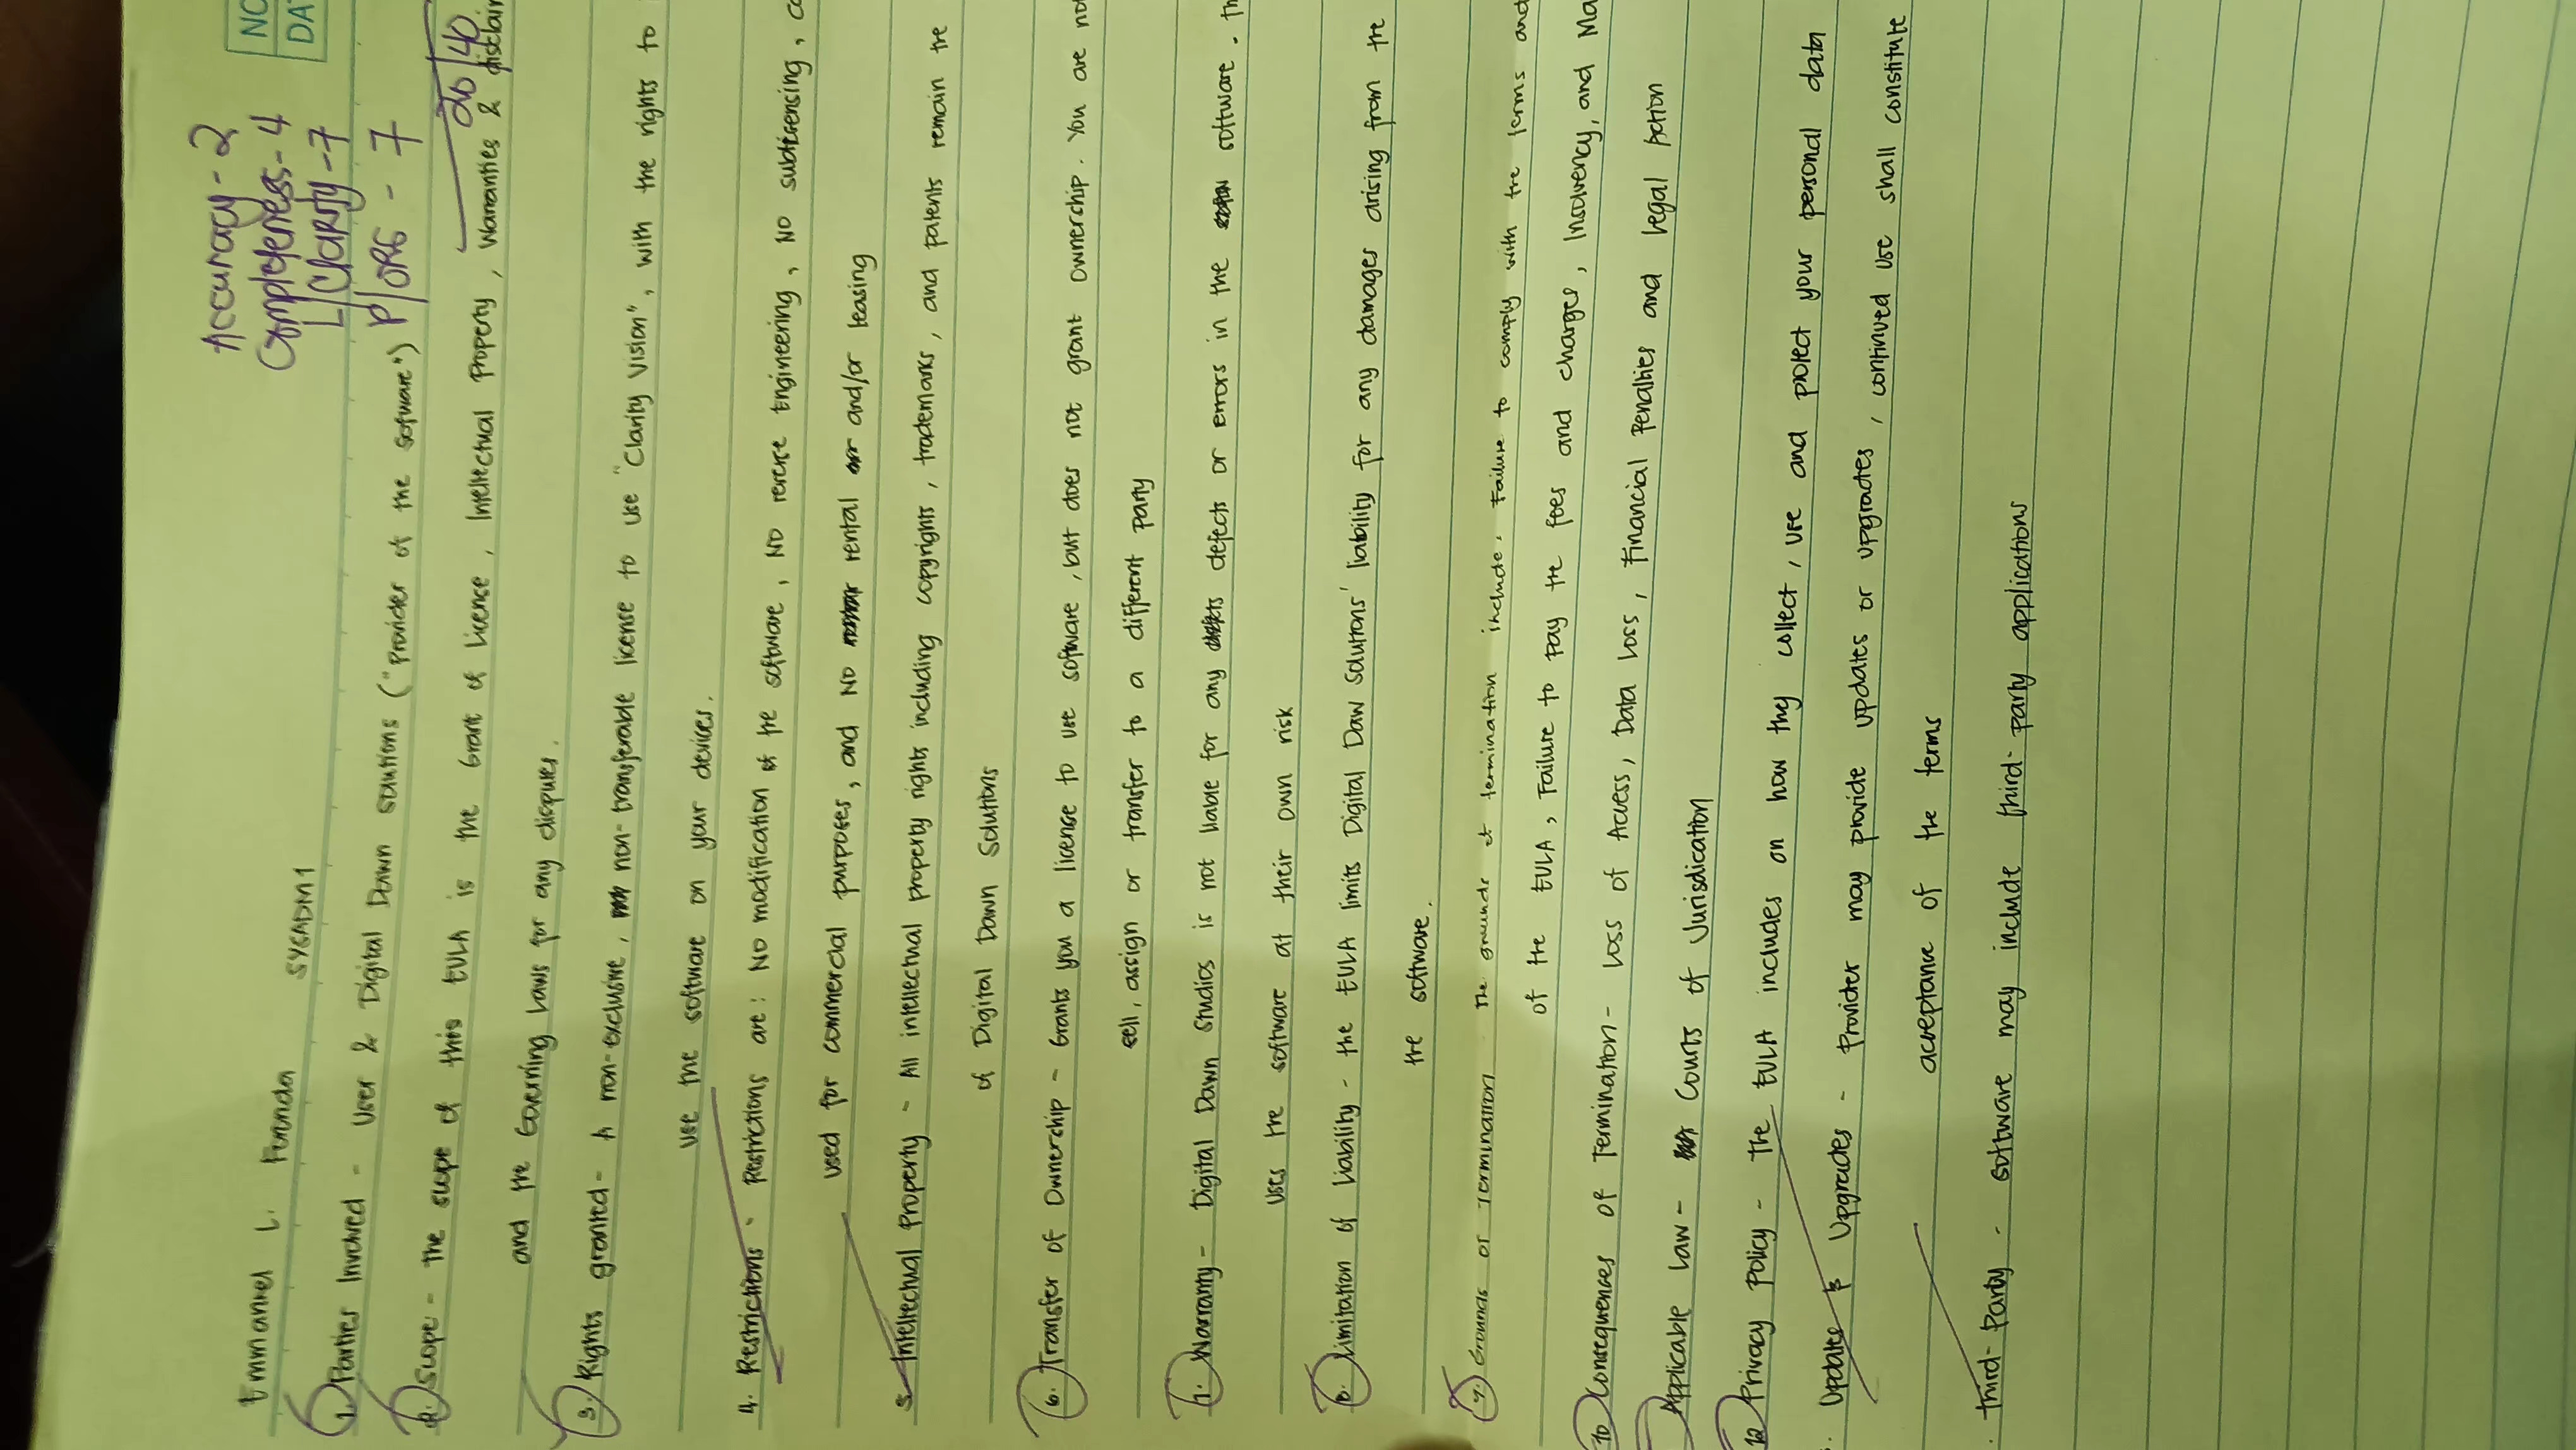 NO
DA
Accuracy - 2
Completeness - 4
L/Clarity - 7
P/ORG - 7
20/40
Emmanuel L. SYSADM1
1. Parties Involved - User & Digital Dawn Solutions ("Provider of the software")
2. Scope - The scope of this EULA is the Grant of Licence, Intellectual Property, Warranties & disclaim
and the Governing Laws for any dispures.
3. Rights granted - A non-exclusive, non-transferable license to use "Clarity Vision", with the rights to
use the software on your devices.
4. Restrictions - Restrictions are: No modification of the software, No reverse Engineering, No sublicensing, ca
used for commercial purposes, and No rental and/or leasing
5. Intellectual Property - All intellectual property rights including copyrights, trademarks, and patents remain the
of Digital Dawn Solutions
6. Transfer of Ownership - Grants you a license to use software, but does not grant Ownership. You are not
sell, assign or transfer to a different party
7. Warranty - Digital Dawn Studios is not liable for any defects or errors in the software. Th
uses the software at their own risk
8. Limitation of Liability - the EULA limits Digital Daw Solutions' liability for any damages arising from the
the software.
9. Grounds of Termination - The grounds of termination include, Failure to comply with the terms and
of the EULA, Failure to pay the fees and charges, Insolvency, and Ma
10 Consequences of Termination - Loss of Access, Data Loss, Financial Penalties and Legal Action
Applicable Law - Courts of Jurisdication
12 Privacy Policy - The EULA includes on how they collect, use and protect your personal data
. Updates & Upgrades - Provider may provide updates or upgrades, continued use shall constitute
acceptance of the terms
. Third-Party - software may include third-party applications